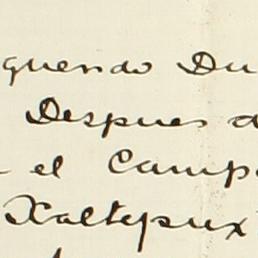 quendo Du
Despues d
el Camp
Xaltepux